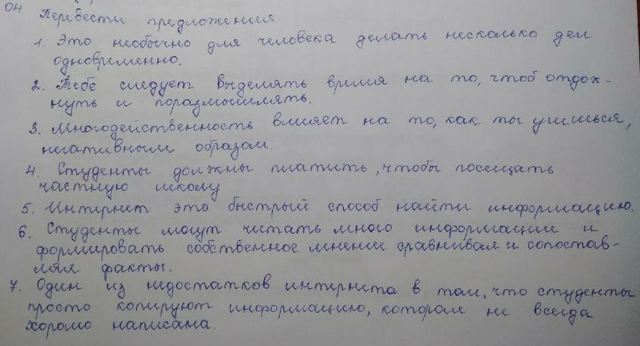 04 Перевести предложения
1. Это необычно для человека делать несколько дел
одновременно.
2. Тебе следует выделять время на то, чтоб отдох-
нуть и поразмышлять.
3. Многодейственность влияет на то, как ты учишься,
негативным образом.
4. Студенты должны платить, чтобы посещать
частную школу
5. Интернет это быстрый способ найти информацию.
6. Студенты могут читать много информации и
формировать собственное мнение сравнивая и сопостав-
ляя факты.
7. Один из недостатков интернета в том, что студенты
просто копируют информацию, которая не всегда
хорошо написана.